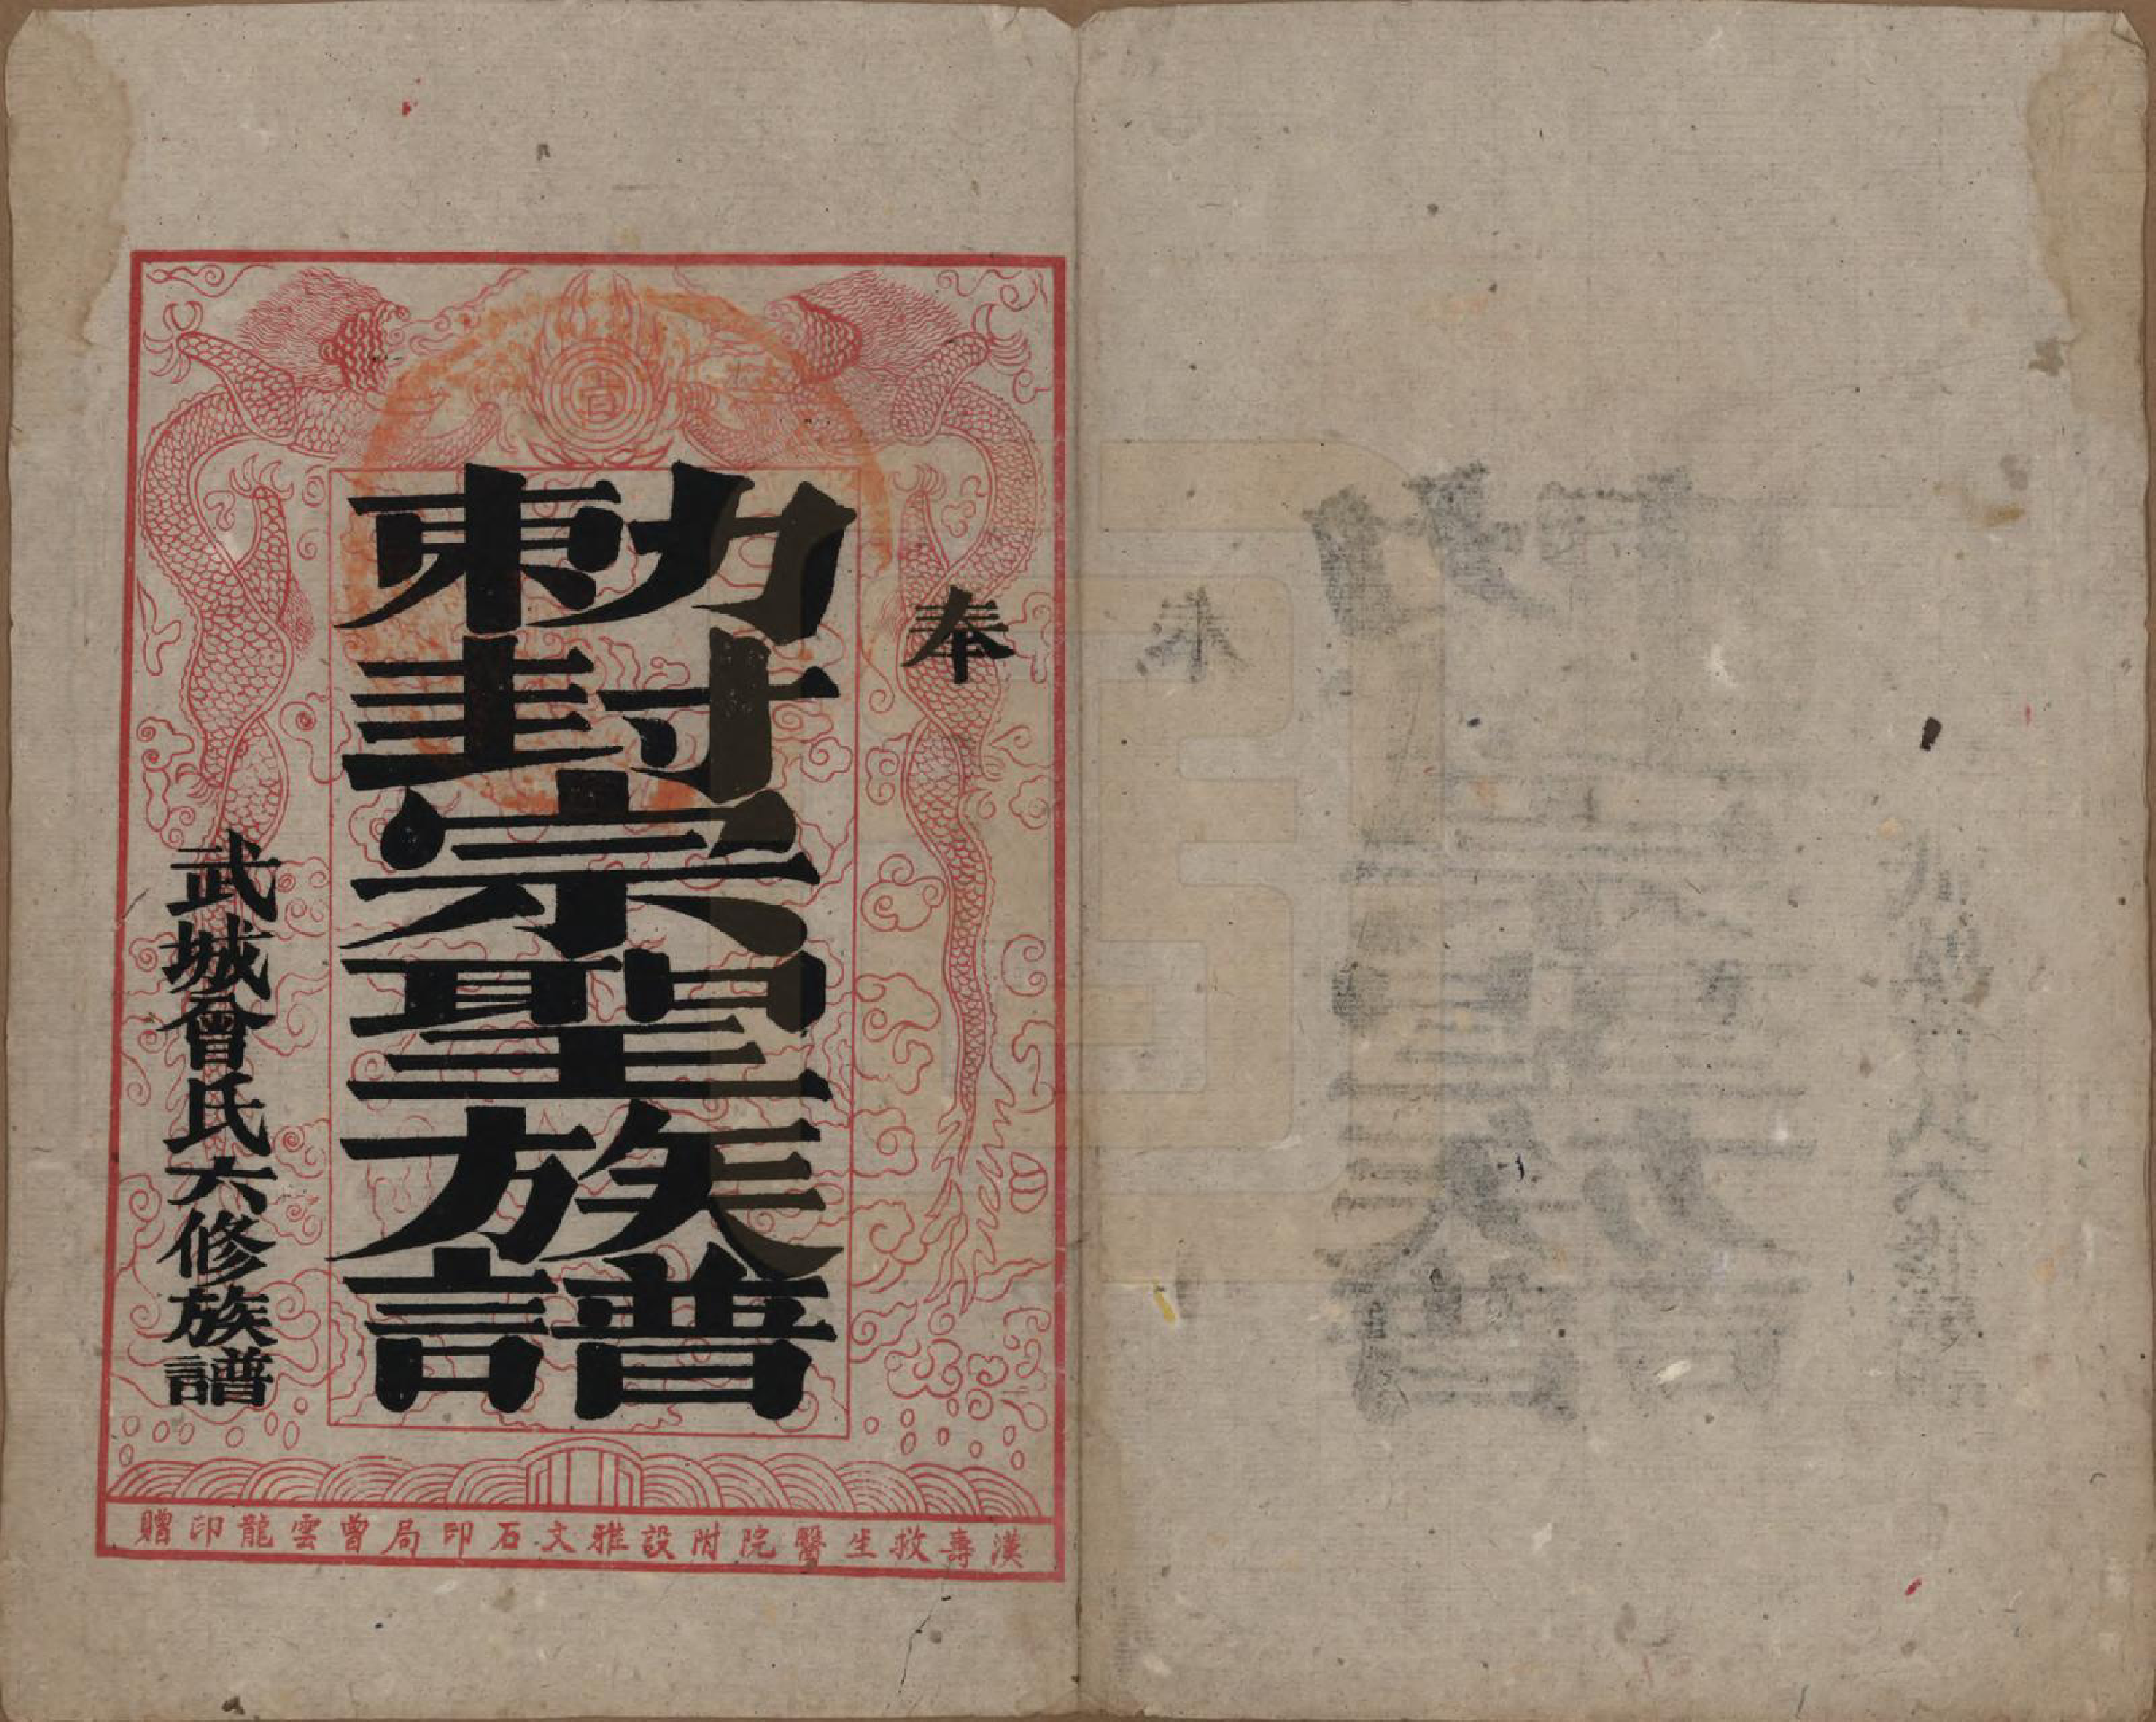 奉
勅封宗聖族譜
武城曾氏六修族譜
漢壽救生醫院附設雅文石印局曾雲龍印贈